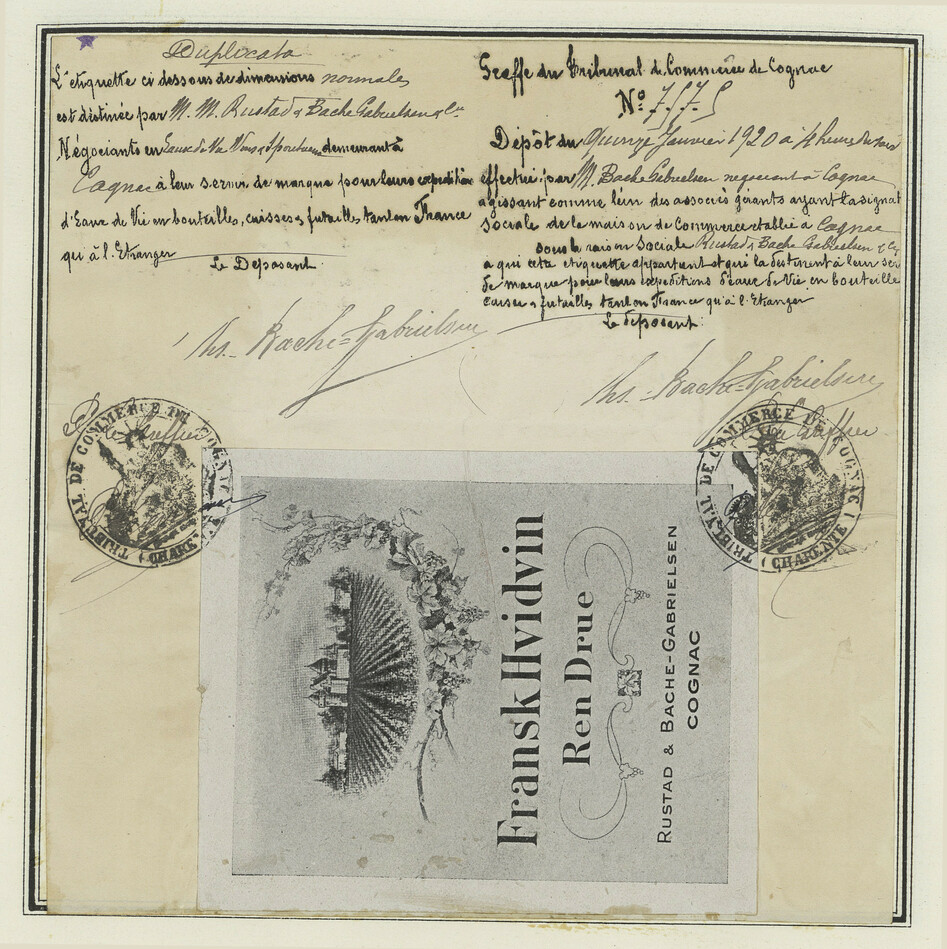 Duplicata
L'etiquette ci dessous de dimensions normales
est destinée par M. M. Rustad & Bache Gabrielsen & Cie
Négociants en Eaux de Vie Vins & Spiritueux demeurant à
Cognac à leur servir de marque pour leurs expeditions
d'Eaux de Vie en bouteilles, caisses & futailles tant en France
qu à l'Etranger
Le Deposant
Ths. Bache=Gabrielsen
Le Greffier
Greffe du Tribunal de Commerce de Cognac
No 7175
Dépôt du Quinze Janvier 1920 à 4 heures du soir
effectué par M. Bache Gabrielsen negociant à Cognac
agissant comme l'un des associés gérants ayant la signat
Sociale de la maison de Commerce etablie à Cognac
sous la raison Sociale Rustad & Bache Gabrielsen & Cie
a qui cette etiquette appartient et qui la destinent à leur ser
de marque pour leurs expeditions d'eaux de Vie en bouteille
caisses & futailles tant en France qu'à l'Etranger
Le déposant:
Ths. Bache=Gabrielsen
Le Greffier
TRIBUNAL DE COMMERCE DE COGNAC
(CHARENTE)
TRIBUNAL DE COMMERCE DE COGNAC
(CHARENTE)
Fransk Hvidvin
Ren Drue
RUSTAD & BACHE-GABRIELSEN
COGNAC